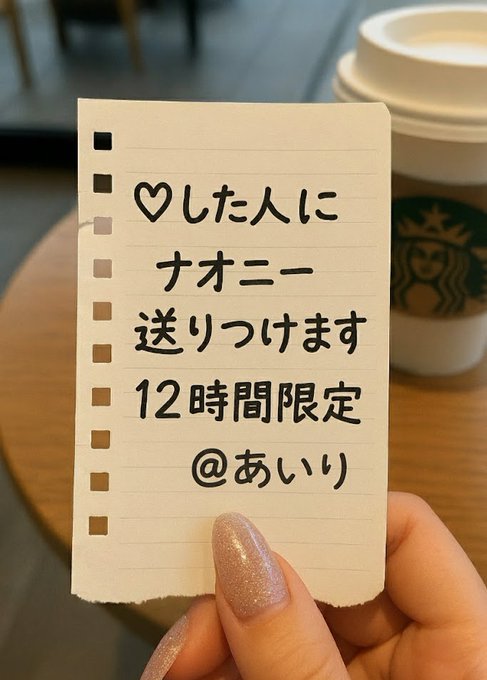 ♡した人に
ナオニー
送りつけます
12時間限定
@あいり